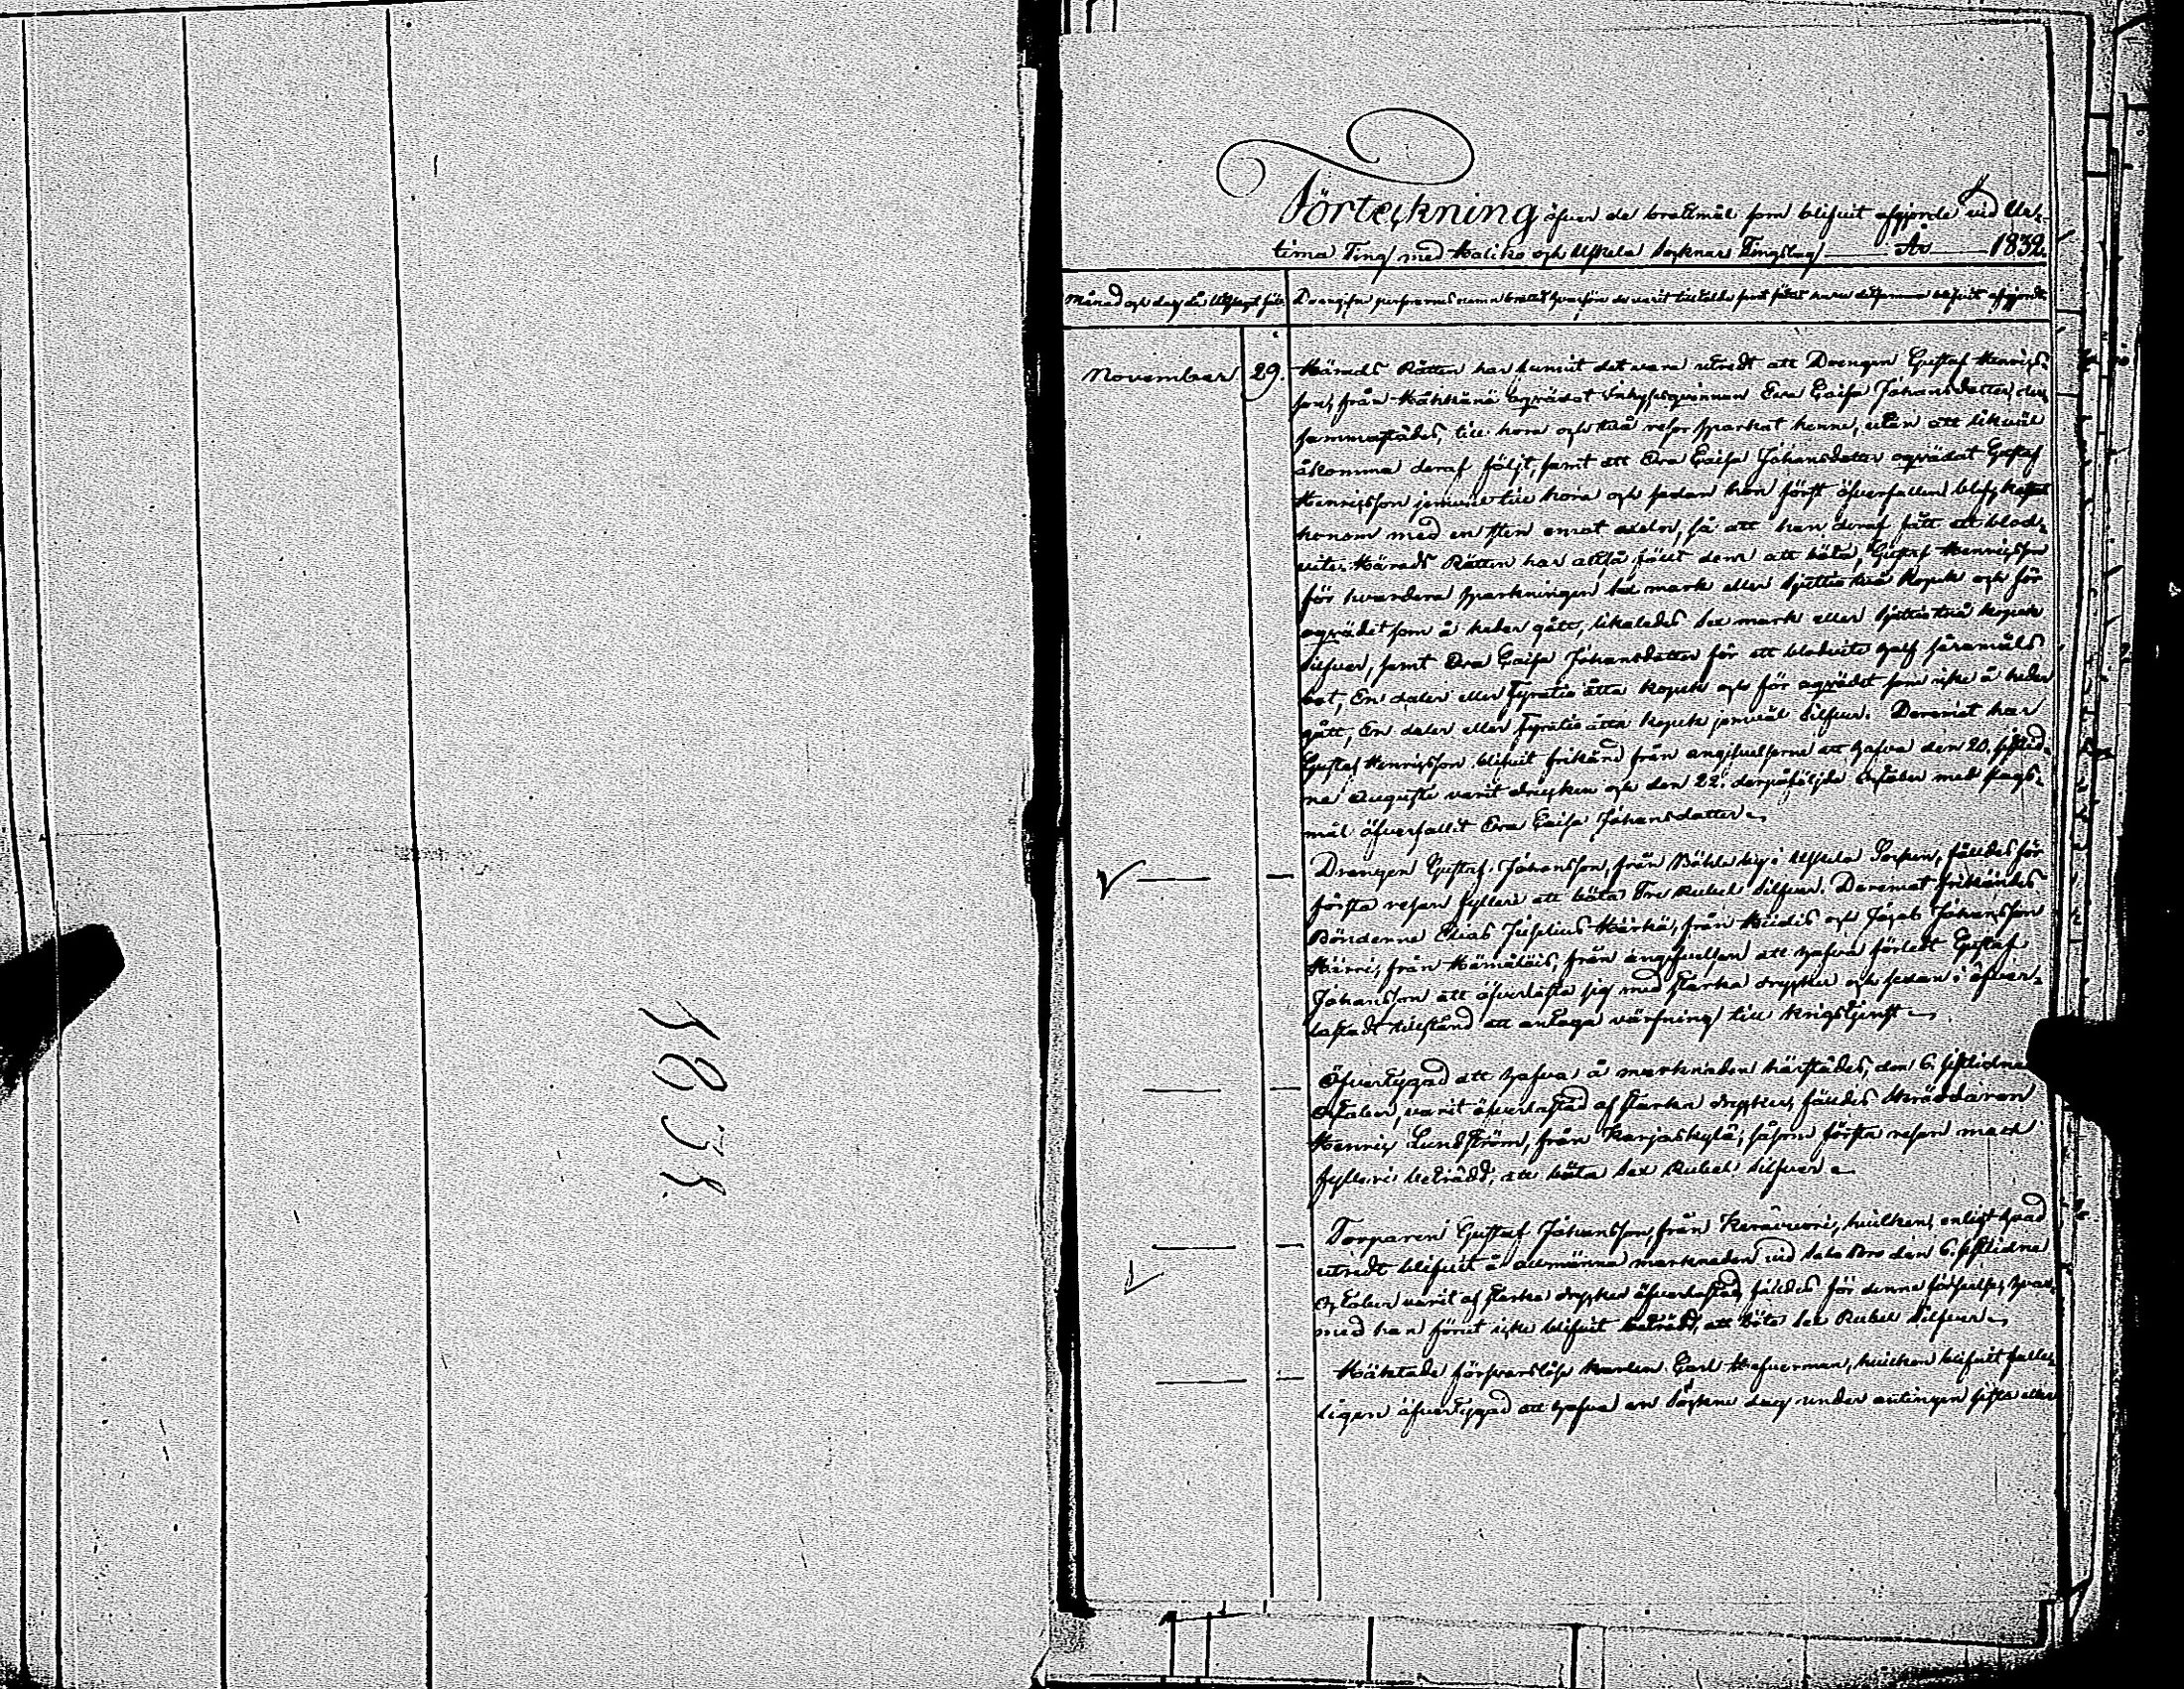 Förteckning öfver de brottmål som blifvit afgjorde vid Ur-
tima Ting med Haliko och Uskela Socknars Tingslag År 1832.
Månad och dag då Utslaget föll. De angifne personernes namn brottet hvarföre de varit tilltalde samt sättet huru detsamma blifvit afgjordt.
November 29. Härads Rätten har funnit det vara utredt att Drengen Gustaf Henrics-
son, från Häkkänä oqvädat Inhysesqvinnan Eva Caisa Johansdotter, der-
sammastädes, till hora och två resor sparkat henne, utan att likväl
åkomma deraf följt, samt att Eva Caisa Johansdotter oqvädat Gustaf
Henricsson jemväl till hora och sedan hon först öfverfallen blef, kastat
honom med en sten emot axeln, så att han deraf fått ett blod-
vite. Härads Rätten har altså fällt dem att böta, Gustaf Henricsson
för hvardera sparkningen sex mark eller sjuttiotvå Kopek och för
oqvädet som å heder gått, likaledes sex mark eller sjuttiotvå kopek
Silfver, samt Eva Caisa Johansdotter för ett blodvite half såramåls
bot, En daler eller fyratioåtta kopek och för oqvädet som icke å heder
gått, En daler eller fyratioåtta kopek jemväl Silfver. Deremot har
Gustaf Henricsson blifvit frikänd från angifvelserne att hafva den 20. sistlid-
ne Augusti varit drucken och den 22. derpåföljde October med slags-
mål öfverfallit Eva Caisa Johansdotter.
Drengen Gustaf Johansson, från by i Uskela Socken, fälldes för
första resan fylleri att böta Tre Rubel Silfver. Deremot frikändes
Bönderne Elias Härkä, från och Jacob Johansson
Härri, från Hämäläis, från angifvelsen att hafva förledt Gustaf
Johansson att öfverlasta sig med starka drycker och sedan i öfver-
lastadt tillstånd att antaga värfning till krigstjenst.
Öfvertygad att hafva å marknaden härstädes, den 6. sistlidne
October, varit öfverlastad af starka drycker, fälldes Skräddaren
Henric Lundström, från Karjaskylä, såsom första resan med
fylleri beträdd, att böta sex Rubel Silfver.
Torparen Gustaf Johansson, från Keravuori, hvilken, enligt hvad
utredt blifvit å allmänna marknaden vid Salo Bro den 6. sistlidne
October varit af starka drycker öfverlastad, fälldes för denna förseelse, hvar-
med han förut icke blifvit beträdd, att böta sex Rubel Silfver.
Häktade försvarslöse karlen Carl Hafverman, hvilken blifvit fulle-
ligen öfvertygad att hafva en Söckne dag under antingen sista eller
1835.